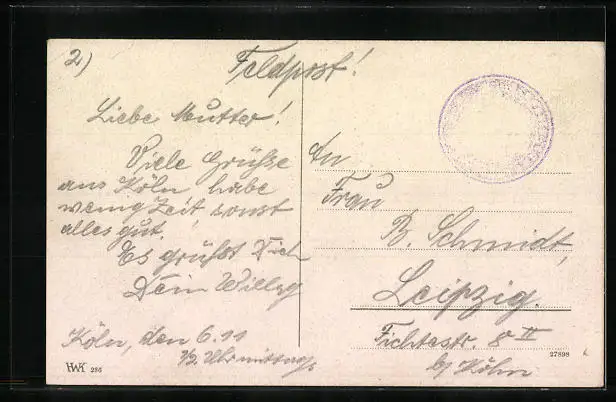 2)
Feldpost!
Liebe Mutter!
Viele Grüße
aus Köln habe
wenig Zeit sonst
alles gut.
Es grüßt Dich
Dein Willy
Köln, den 6.11
1/2 Uhr mittags
HWK 286
An
Frau
B. Schmidt,
Leipzig.
Fichtestr. 8 II
b/ Köhn
27898